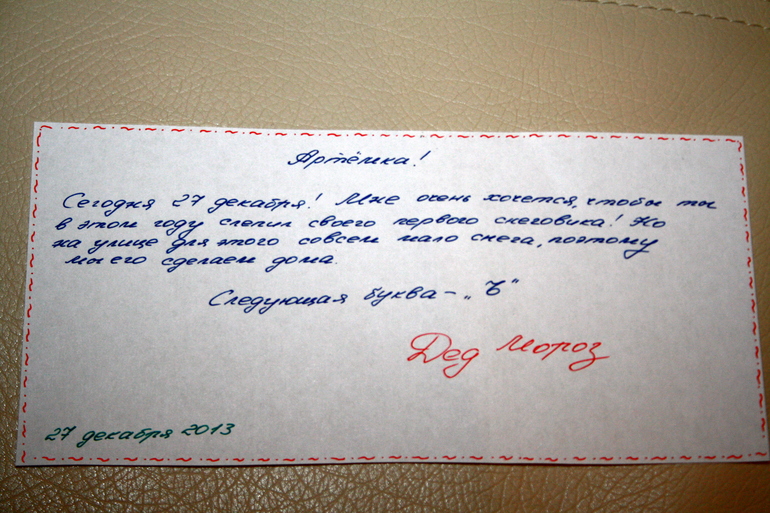 Артёмка!
Сегодня 27 декабря! Мне очень хочется, чтобы ты
в этом году слепил своего первого снеговика! Но
на улице для этого совсем мало снега, поэтому
мы его сделаем дома.
Следующая буква – „Ъ“
Дед Мороз
27 декабря 2013